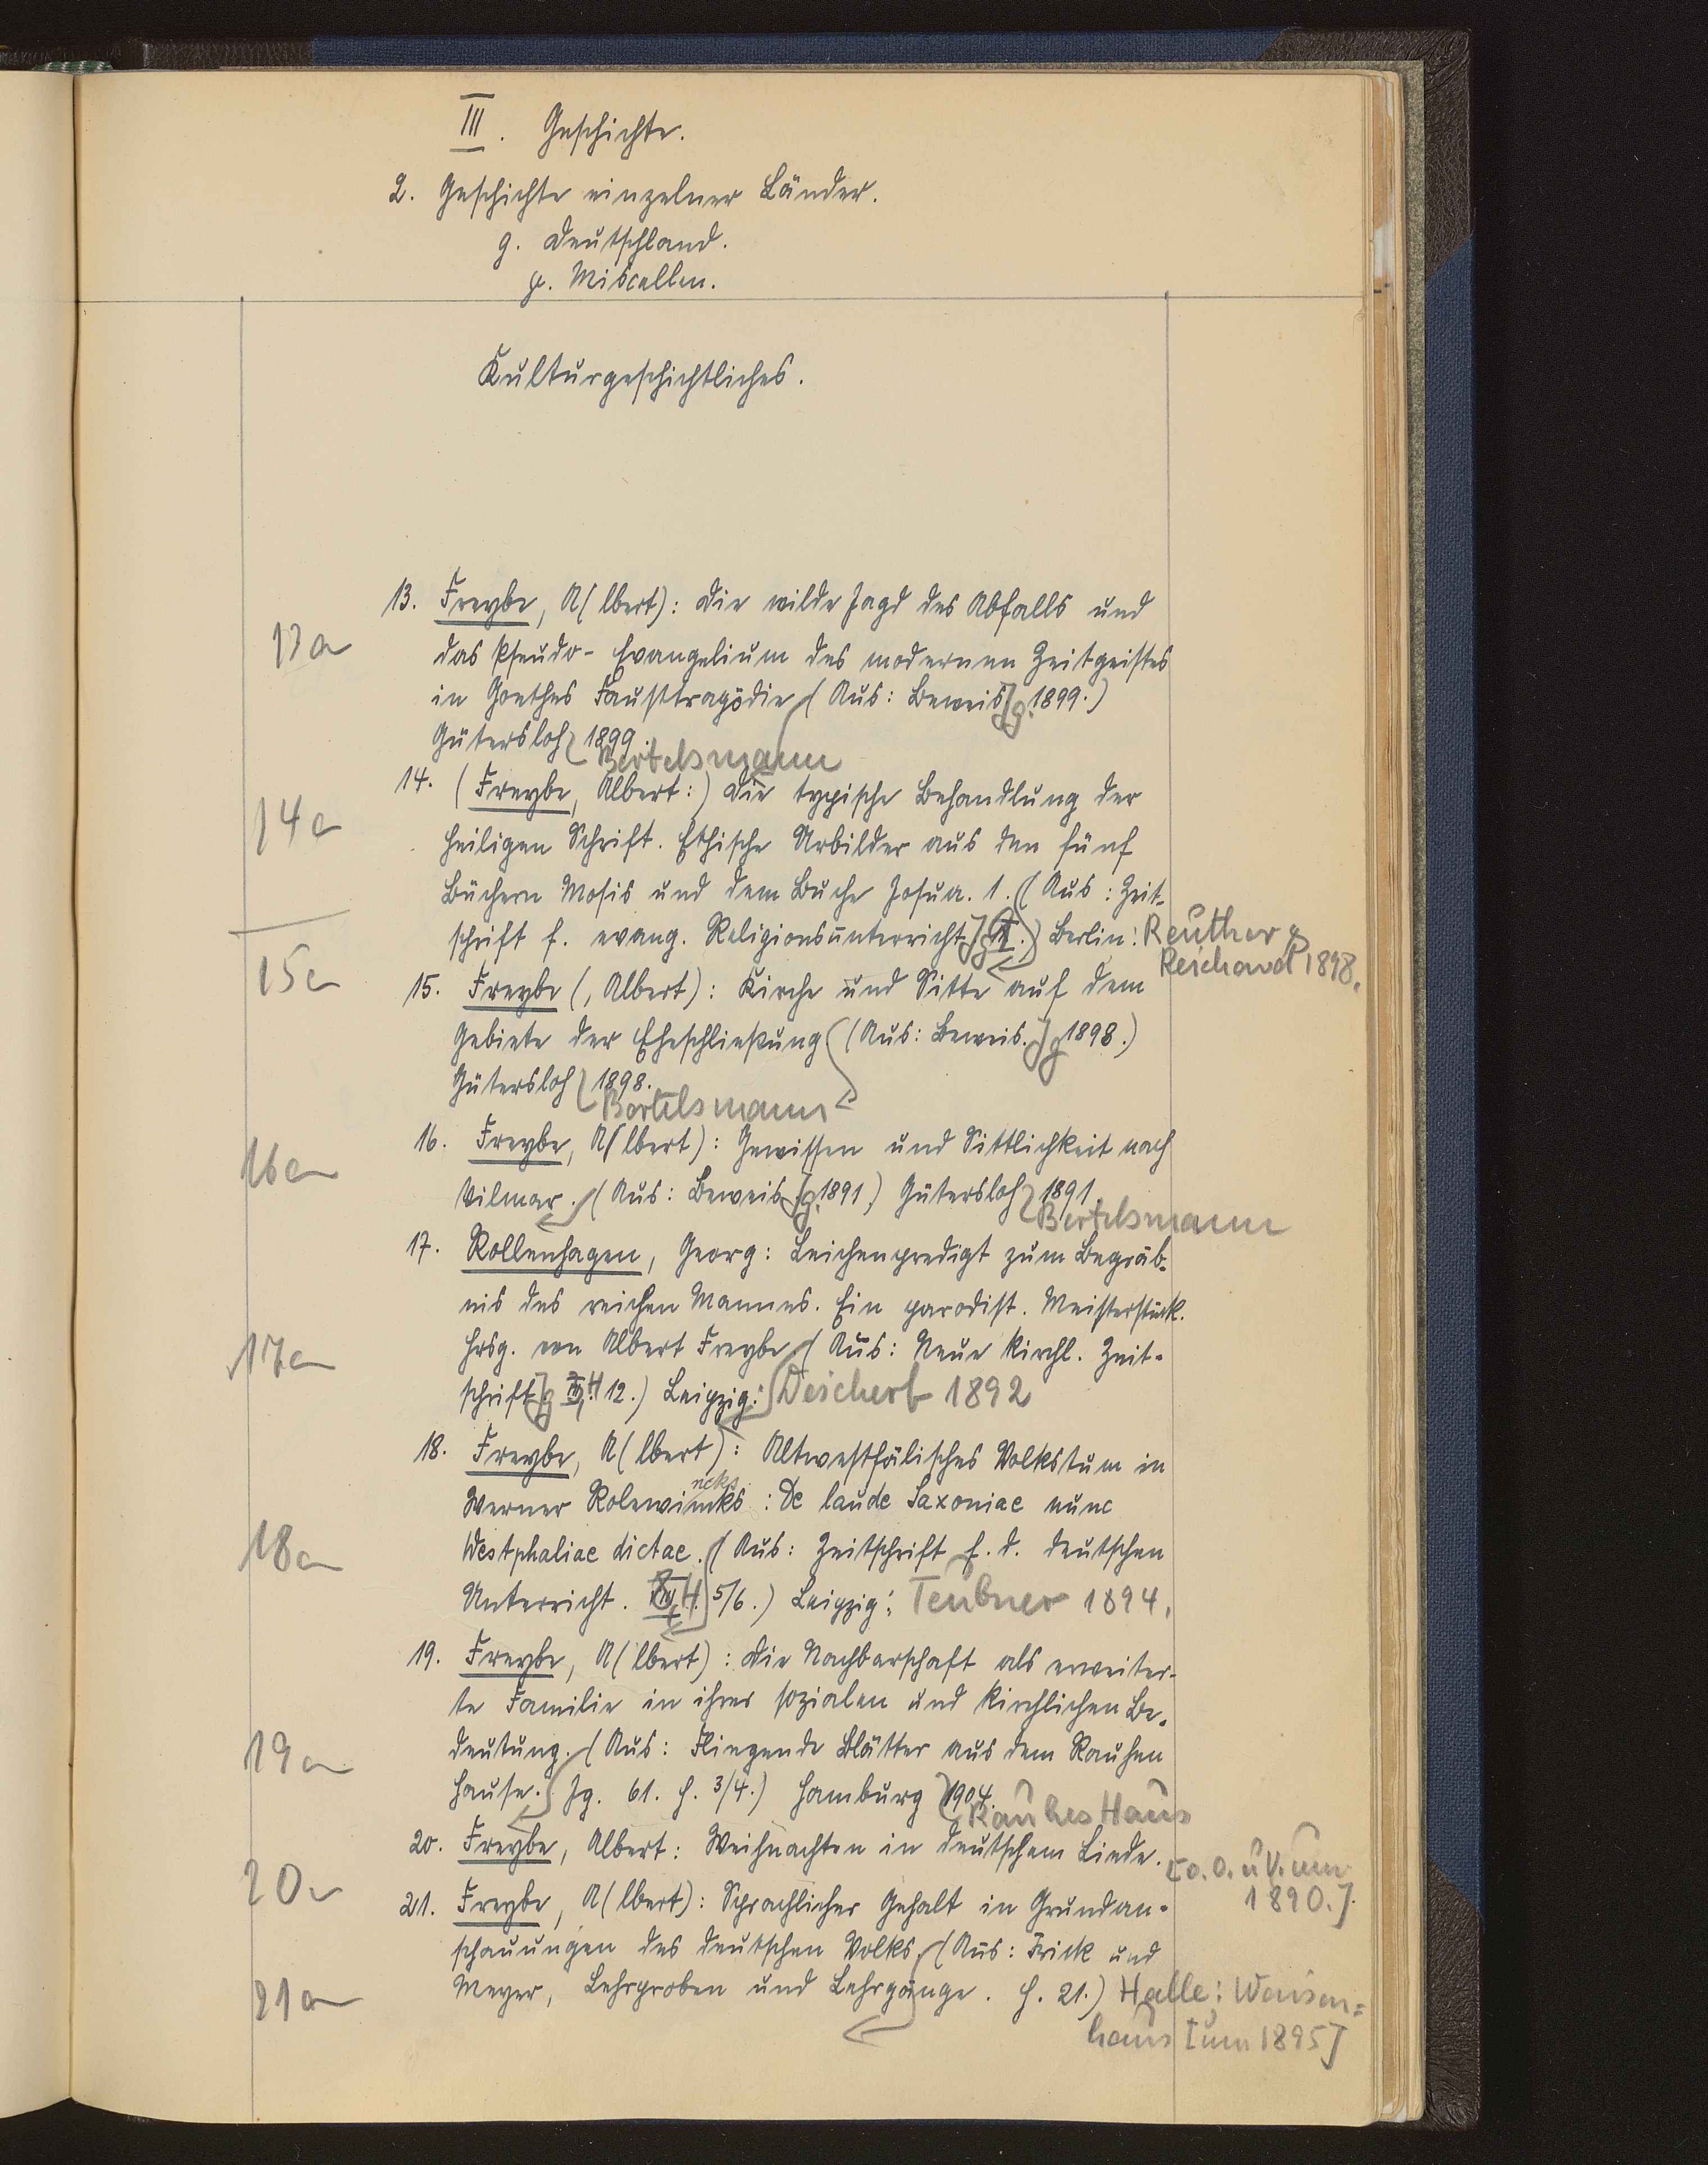 III. Geschichte.
2. Geschichte einzelner Länder.
g. Deutschland.
γ. Miscellen.
Kulturgeschichtliches.
13. Freybe, A(lbert): Die wilde Jagd des Abfalls und
13a
das Pseudo-Evangelium des modernen Zeitgeistes
in Goethes Fausttragödie (Aus: Beweis Jg. 1899.)
Gütersloh 1899.
Bertelsmann
14. (Freybe, Albert:) Die typische Behandlung der
14a
heiligen Schrift. Ethische Urbilder aus den fünf
Büchern Mosis und dem Buche Josua. 1. (Aus: Zeit-
schrift f. evang. Religionsunterricht Jg.) Berlin: Reuther &
Reichard 1898.
15a
15. Freybe (, Albert): Kirche und Sitte auf dem
Gebiete der Eheschließung (Aus: Beweis. Jg 1898.)
Gütersloh 1898.
Bertelsmann
16. Freybe, A(lbert): Gewissen und Sittlichkeit nach
16a
Vilmar. (Aus: Beweis Jg. 1891.) Gütersloh 1891.
Bertelsmann
17. Rollenhagen, Georg: Leichenpredigt zum Begräb-
nis des reichen Mannes. Ein parodist. Meisterstück.
17a
Hrsg. von Albert Freybe (Aus: Neue kirchl. Zeit-
schrift Jg H 12.) Leipzig: Deichert 1892
18. Freybe, A(lbert): Altwestfälisches Volkstum in
ncks
Werner Rolewinks: De laude Saxoniae nunc
18a
Westphaliae dictae. (Aus: Zeitschrift f. d. deutschen
Unterricht. 8, H. 5/6.) Leipzig: Teubner 1894.
19. Freybe, A(lbert): Die Nachbarschaft als erweiter-
te Familie in ihrer sozialen und kirchlichen Be-
19a
deutung. (Aus: Fliegende Blätter aus dem Rauhen
Hause. Jg. 61. H. 3/4.) Hamburg 1904.
Rauhes Haus
20. Freybe, Albert: Weihnachten in deutschem Liede.
[o. O. u V. um
20a
1890.]
21. Freybe, A(lbert): Sprachlicher Gehalt in Grundan-
schauungen des deutschen Volks. (Aus: Frick und
21a
Meyer, Lehrproben und Lehrgänge. H. 21.) Halle: Waisen-
haus [um 1895]